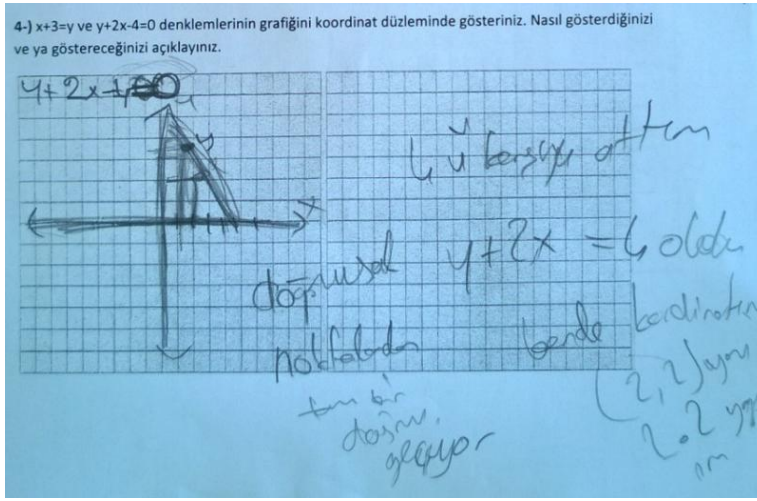 4-) x+3=y ve y+2x-4=0 denklemlerinin grafiğini koordinat düzleminde gösteriniz. Nasıl gösterdiğinizi
ve ya göstereceğinizi açıklayınız.
y+2x-4=0
y
x
4 ü karşıya attım
y+2x = 4 oldu
bende
(2,2)
2.2
doğrusal
noktalardan
tam bir
doğru
geçiyor